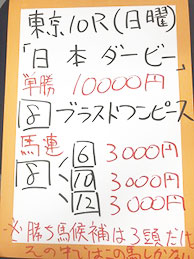 東京10R(日曜)
「日本ダービー」
単勝 10000円
8 ブラストワンピース
馬連
8 6 3000円
10 3000円
12 3000円
※勝ち馬候補は3頭だけ
この馬しかな